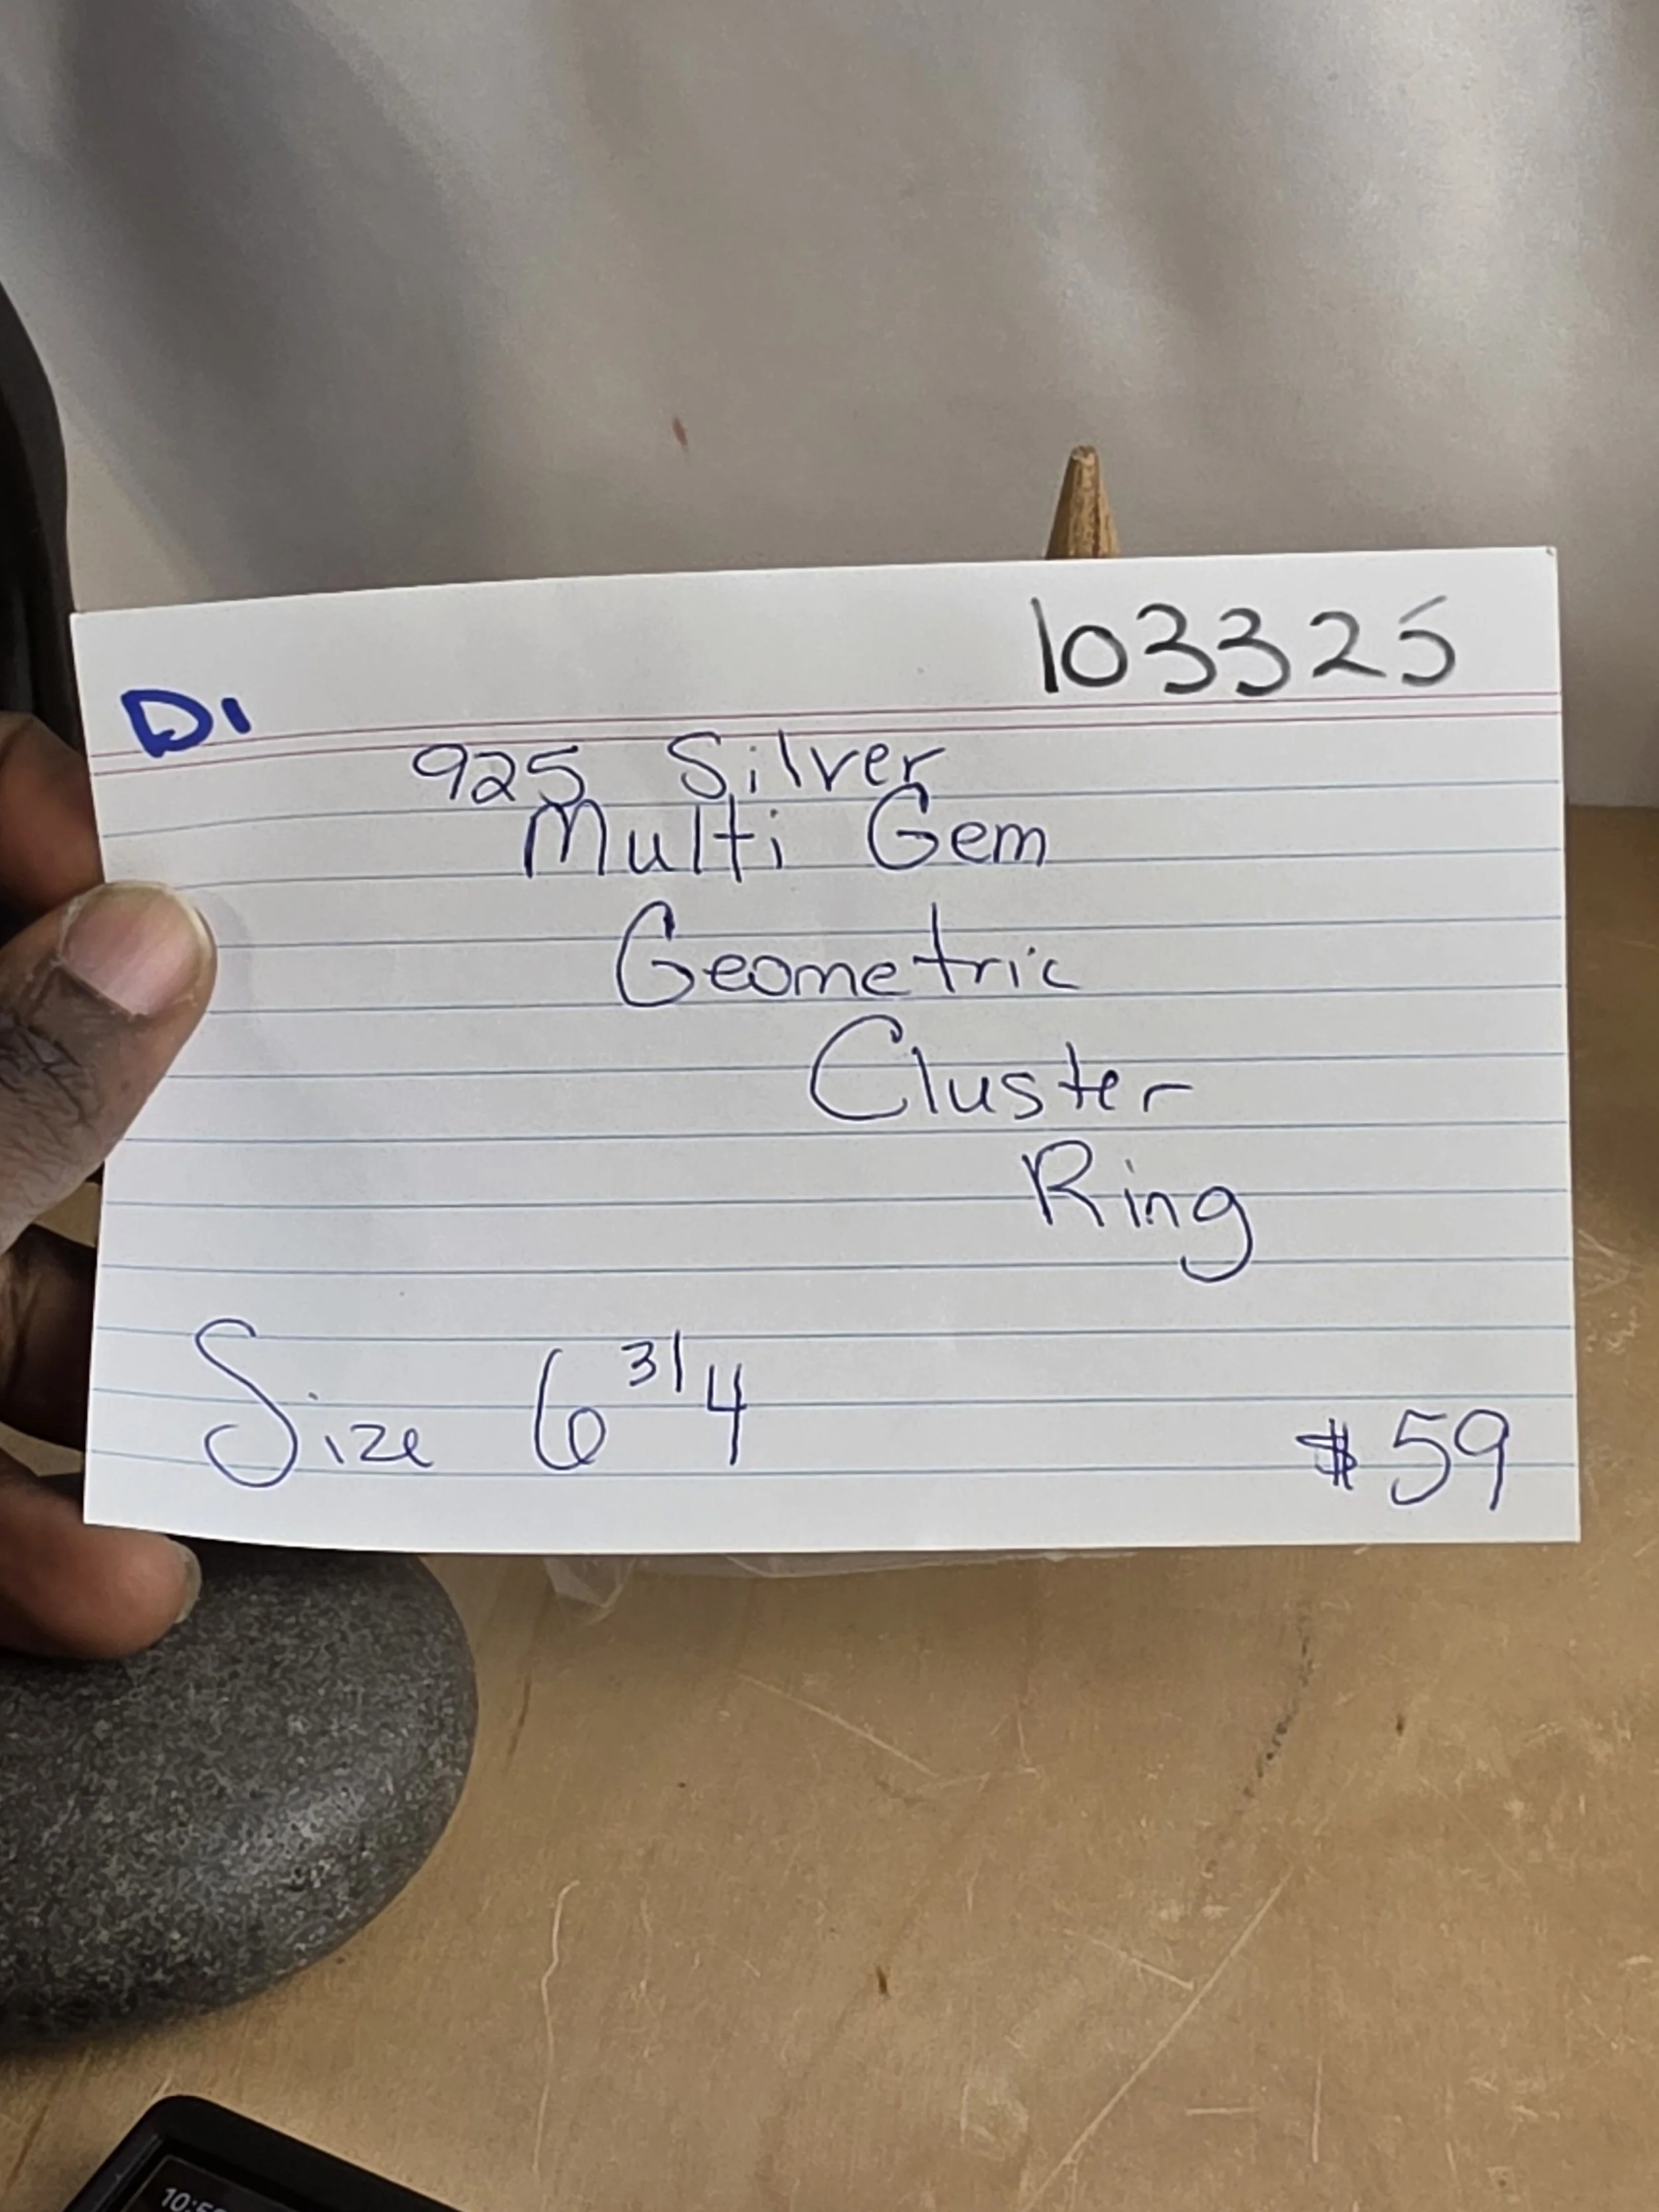 103325
D1
925 Silver
Multi Gem
Geometric
Cluster
Ring
Size 6 3/4
$59